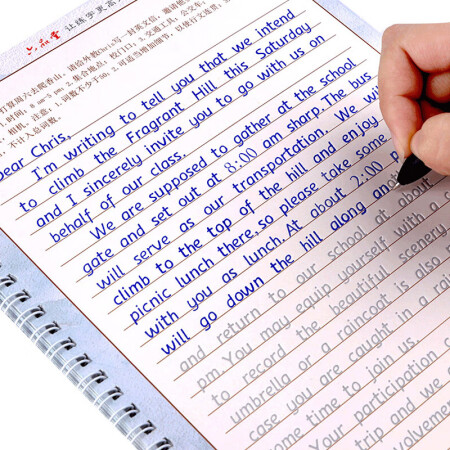 六品堂 让练字更高
打算周六去爬香山。请给外教Chris写一封英文信，邀请他
时间：8 am-5 pm 集合地点：校门口 3.交通工具：公交车
相机。注意：1.词数不少于50。2.可适当增加细节，以使行文连贯
不计入总词数。
Dear Chris,
I'm writing to tell you that we intend
to climb the Fragrant Hill this Saturday
and I sincerely invite you to go with us on
behalf of our class.
We are supposed to gather at the school
gate and set out at 8:00 am sharp. The bus
will serve as our transportation. We will
climb to the top of the hill and enjoy
picnic lunch there, so please take some
with you as lunch. At about 2:00 P
will go down the hill along an
and return to our school at about
pm. You may equip yourself with a c
to record the beautiful scenery
umbrella or a raincoat is also
case you are caught in a rain
some time to join us.
Your participation
trip and we a